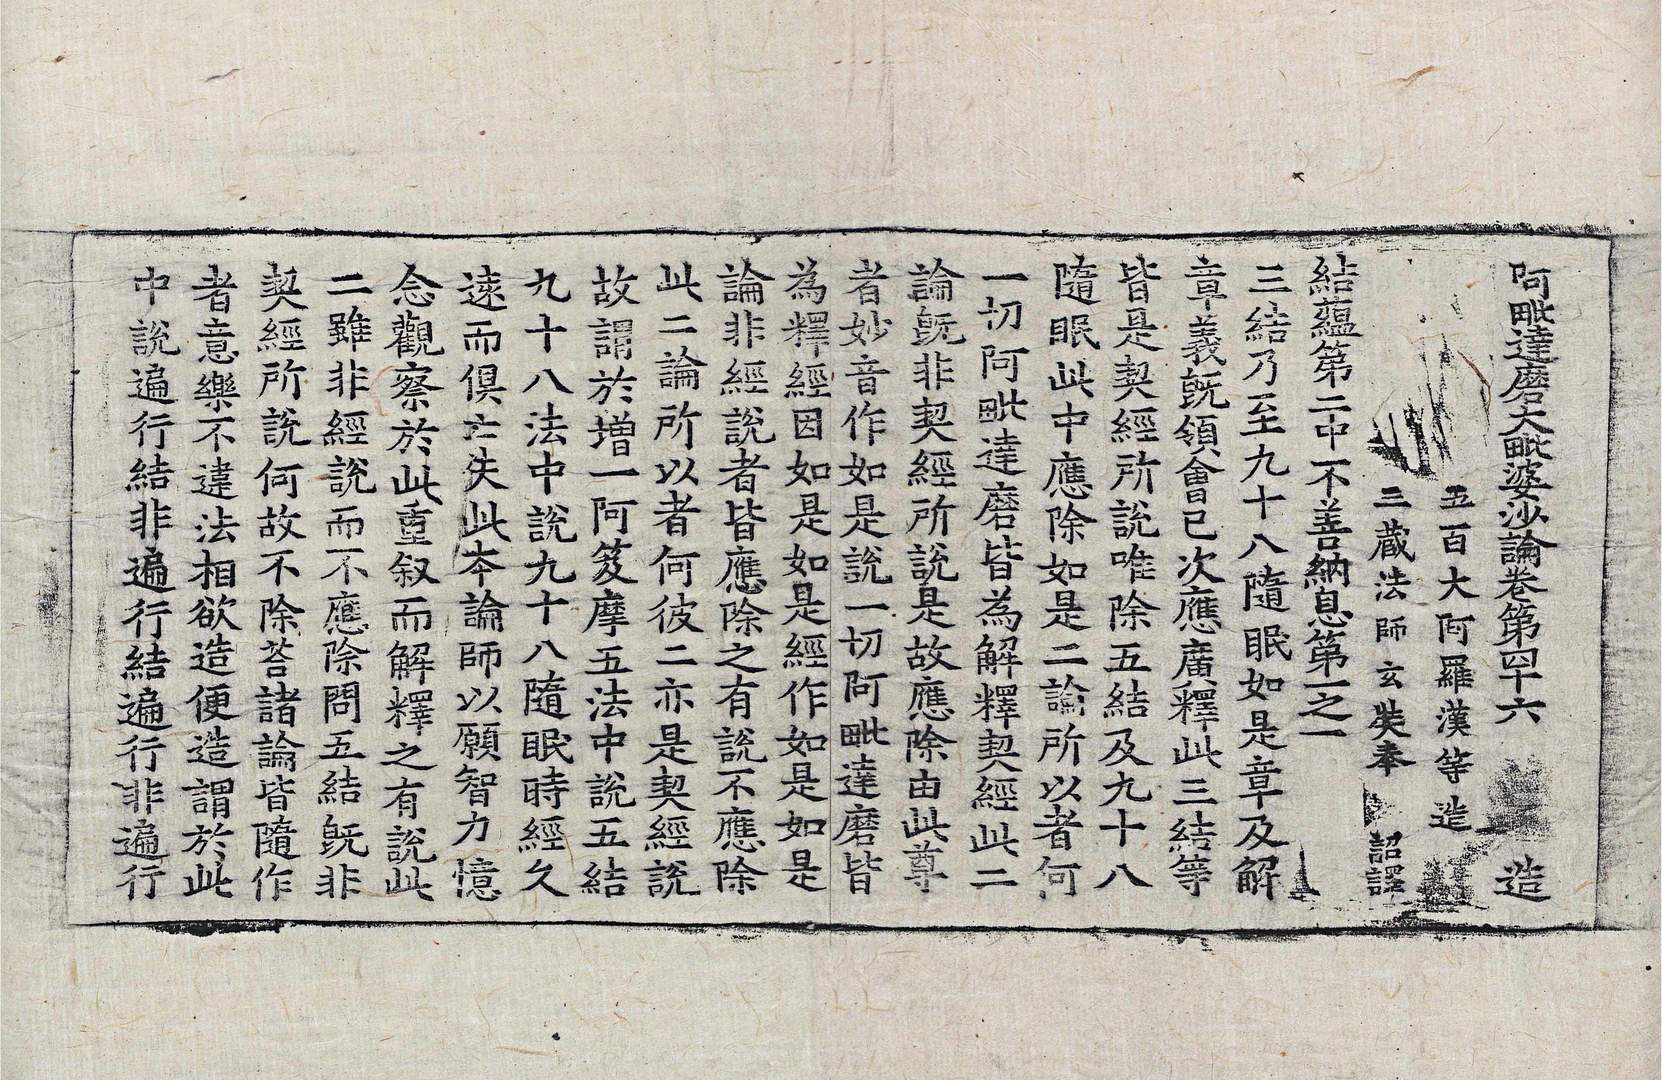 阿毗達磨大毗婆沙論卷第四十六　造
五百大阿羅漢等造
三藏法師玄奘奉　詔譯
結蘊第二中不善納息第一之一
三結乃至九十八隨眠如是章及解
章義既領會已次應廣釋此三結等
皆是契經所說唯除五結及九十八
隨眠此中應除如是二論所以者何
一切阿毗達磨皆為解釋契經此二
論既非契經所說是故應除由此尊
者妙音作如是說一切阿毗達磨皆
為釋經因如是如是經作如是如是
論非經說者皆應除之有說不應除
此二論所以者何彼二亦是契經說
故謂於增一阿笈摩五法中說五結
九十八法中說九十八隨眠時經久
速而俱亡失此本論師以願智力憶
念觀察於此重叙而解釋之有說此
二雖非經說而不應除問五結既非
契經所說何故不除荅諸論皆隨作
者意樂不違法相欲造便造謂於此
中說遍行結非遍行結遍行非遍行